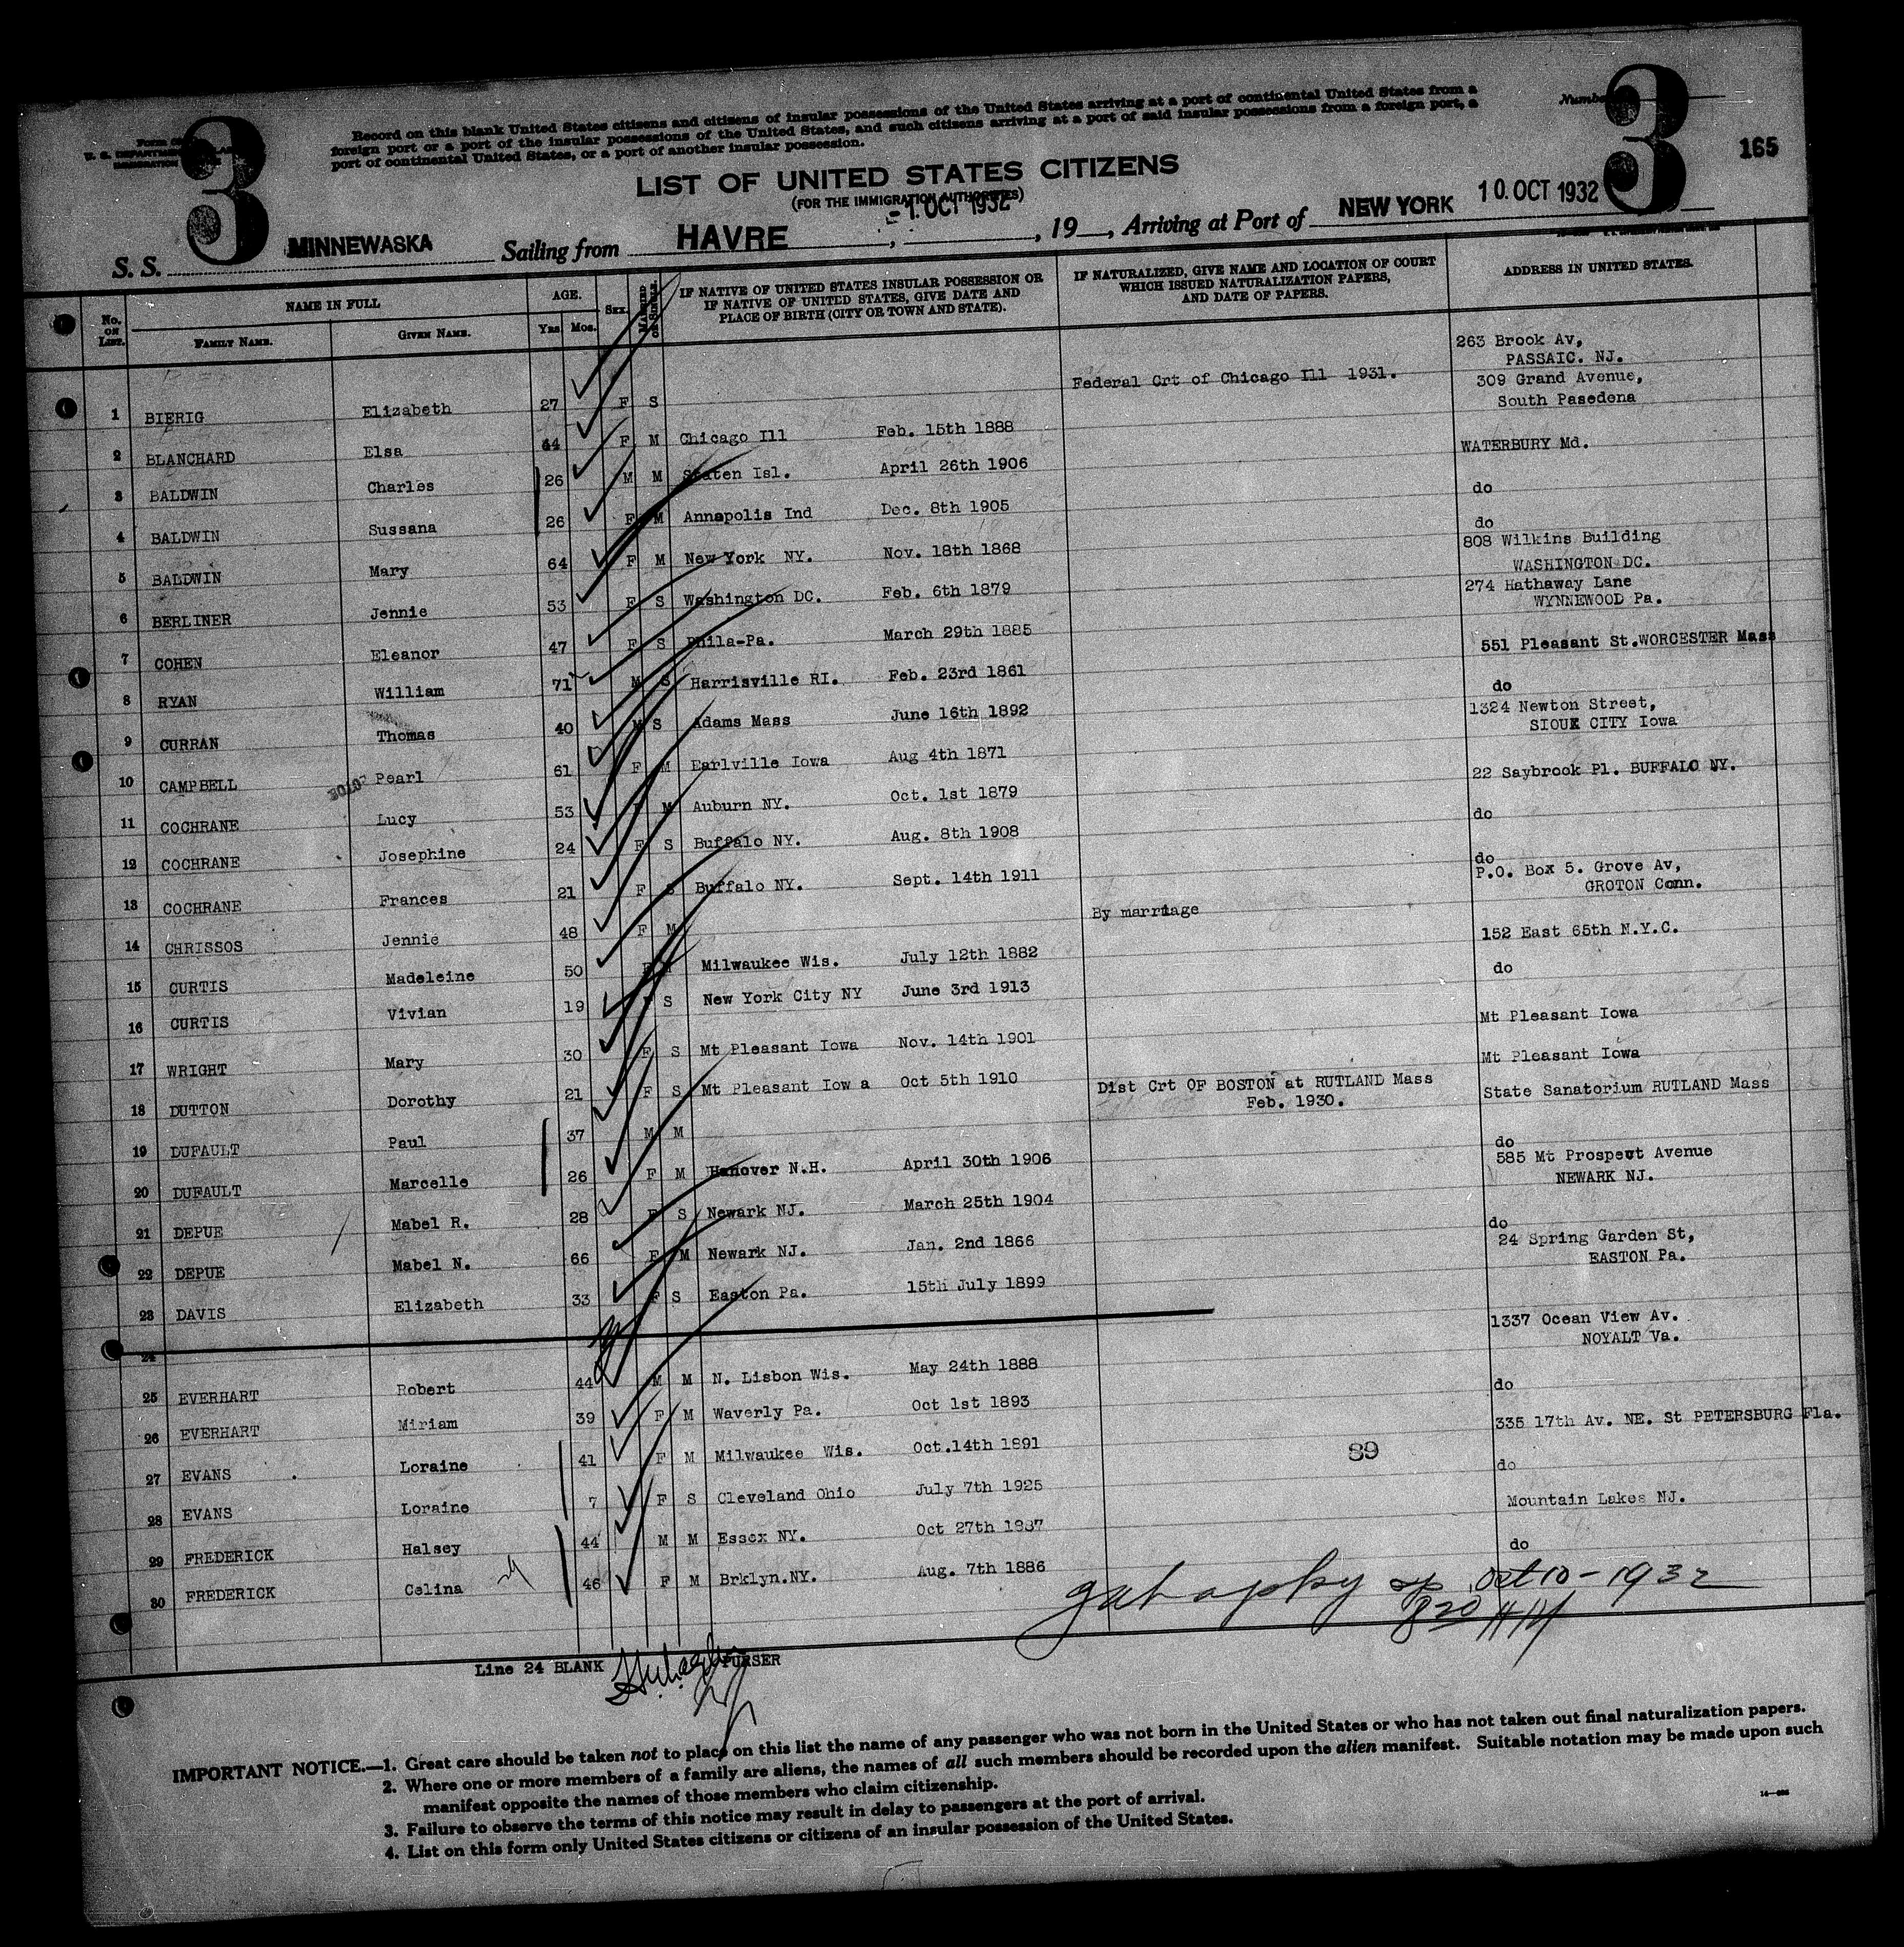 3
3
165
Record on this blank United States citizens and citizens of insular possessions of the United States arriving at a port of continental United States from a
foreign port or a port of the insular possessions of the United States, and such citizens arriving at a port of said insular possessions from a foreign port, a
port of continental United States, or a port of another insular possession.
LIST OF UNITED STATES CITIZENS
(FOR THE IMMIGRATION AUTHORITIES)
S. S. MINNEWASKA Sailing from HAVRE, - 1. OCT 1932, 19__, Arriving at Port of NEW YORK 10. OCT 1932
No. ON LIST. NAME IN FULL FAMILY NAME. GIVEN NAME. AGE. Yrs Mos. SEX. MARRIED OR SINGLE. IF NATIVE OF UNITED STATES INSULAR POSSESSION OR IF NATIVE OF UNITED STATES, GIVE DATE AND PLACE OF BIRTH (CITY OR TOWN AND STATE). IF NATURALIZED, GIVE NAME AND LOCATION OF COURT WHICH ISSUED NATURALIZATION PAPERS, AND DATE OF PAPERS. ADDRESS IN UNITED STATES.
1 BIERIG Elizabeth 27 F S Federal Crt of Chicago Ill 1931. 263 Brook Av, PASSAIC. NJ.
2 BLANCHARD Elsa 44 F M Chicago Ill Feb. 15th 1888 309 Grand Avenue, South Pasedena
3 BALDWIN Charles 26 M M Staten Isl. April 26th 1906 WATERBURY Md.
4 BALDWIN Sussana 26 F M Annapolis Ind Dec. 8th 1905 do
5 BALDWIN Mary 64 F M New York NY. Nov. 18th 1868 do
6 BERLINER Jennie 53 F S Washington DC. Feb. 6th 1879 808 Wilkins Building WASHINGTON DC.
7 COHEN Eleanor 47 F S Phila-Pa. March 29th 1885 274 Hathaway Lane WYNNEWOOD Pa.
8 RYAN William 71 M S Harrisville RI. Feb. 23rd 1861 551 Pleasant St.WORCESTER Mass
9 CURRAN Thomas 40 M S Adams Mass June 16th 1892 do
10 CAMPBELL Pearl 61 F M Earlville Iowa Aug 4th 1871 1324 Newton Street, SIOUX CITY Iowa
11 COCHRANE Lucy 53 F M Auburn NY. Oct. 1st 1879 22 Saybrook Pl. BUFFALO NY.
12 COCHRANE Josephine 24 F S Buffalo NY. Aug. 8th 1908 do
13 COCHRANE Frances 21 F S Buffalo NY. Sept. 14th 1911 do
14 CHRISSOS Jennie 48 F M By marriage P.O. Box 5. Grove Av, GROTON Conn.
15 CURTIS Madeleine 50 F M Milwaukee Wis. July 12th 1882 152 East 65th N.Y.C.
16 CURTIS Vivian 19 F S New York City NY June 3rd 1913 do
17 WRIGHT Mary 30 F S Mt Pleasant Iowa Nov. 14th 1901 Mt Pleasant Iowa
18 DUTTON Dorothy 21 F S Mt Pleasant Iow a Oct 5th 1910 Mt Pleasant Iowa
19 DUFAULT Paul 37 M M Dist Crt OF BOSTON at RUTLAND Mass Feb. 1930. State Sanatorium RUTLAND Mass
20 DUFAULT Marcelle 26 F M Hanover N.H. April 30th 1906 do
21 DEPUE Mabel R. 28 F S Newark NJ. March 25th 1904 585 Mt Prospevt Avenue NEWARK NJ.
22 DEPUE Mabel N. 66 F M Newark NJ. Jan. 2nd 1866 do
23 DAVIS Elizabeth 33 F S Easton Pa. 15th July 1899 24 Spring Garden St, EASTON Pa.
24
25 EVERHART Robert 44 M M N. Lisbon Wis. May 24th 1888 1337 Ocean View Av. NOYALT Va.
26 EVERHART Miriam 39 F M Waverly Pa. Oct 1st 1893 do
27 EVANS Loraine 41 F M Milwaukee Wis. Oct.14th 1891 335 17th Av. NE. St PETERSBURG Fla.
89
28 EVANS Loraine 7 F S Cleveland Ohio July 7th 1925 do
29 FREDERICK Halsey 44 M M Essex NY. Oct 27th 1887 Mountain Lakes NJ.
30 FREDERICK Celina 46 F M Brklyn.NY. Aug. 7th 1886 do
Oct 10 - 1932
Line 24 BLANK PURSER
IMPORTANT NOTICE.—1. Great care should be taken not to place on this list the name of any passenger who was not born in the United States or who has not taken out final naturalization papers.
2. Where one or more members of a family are aliens, the names of all such members should be recorded upon the alien manifest. Suitable notation may be made upon such
manifest opposite the names of those members who claim citizenship.
3. Failure to observe the terms of this notice may result in delay to passengers at the port of arrival.
4. List on this form only United States citizens or citizens of an insular possession of the United States.